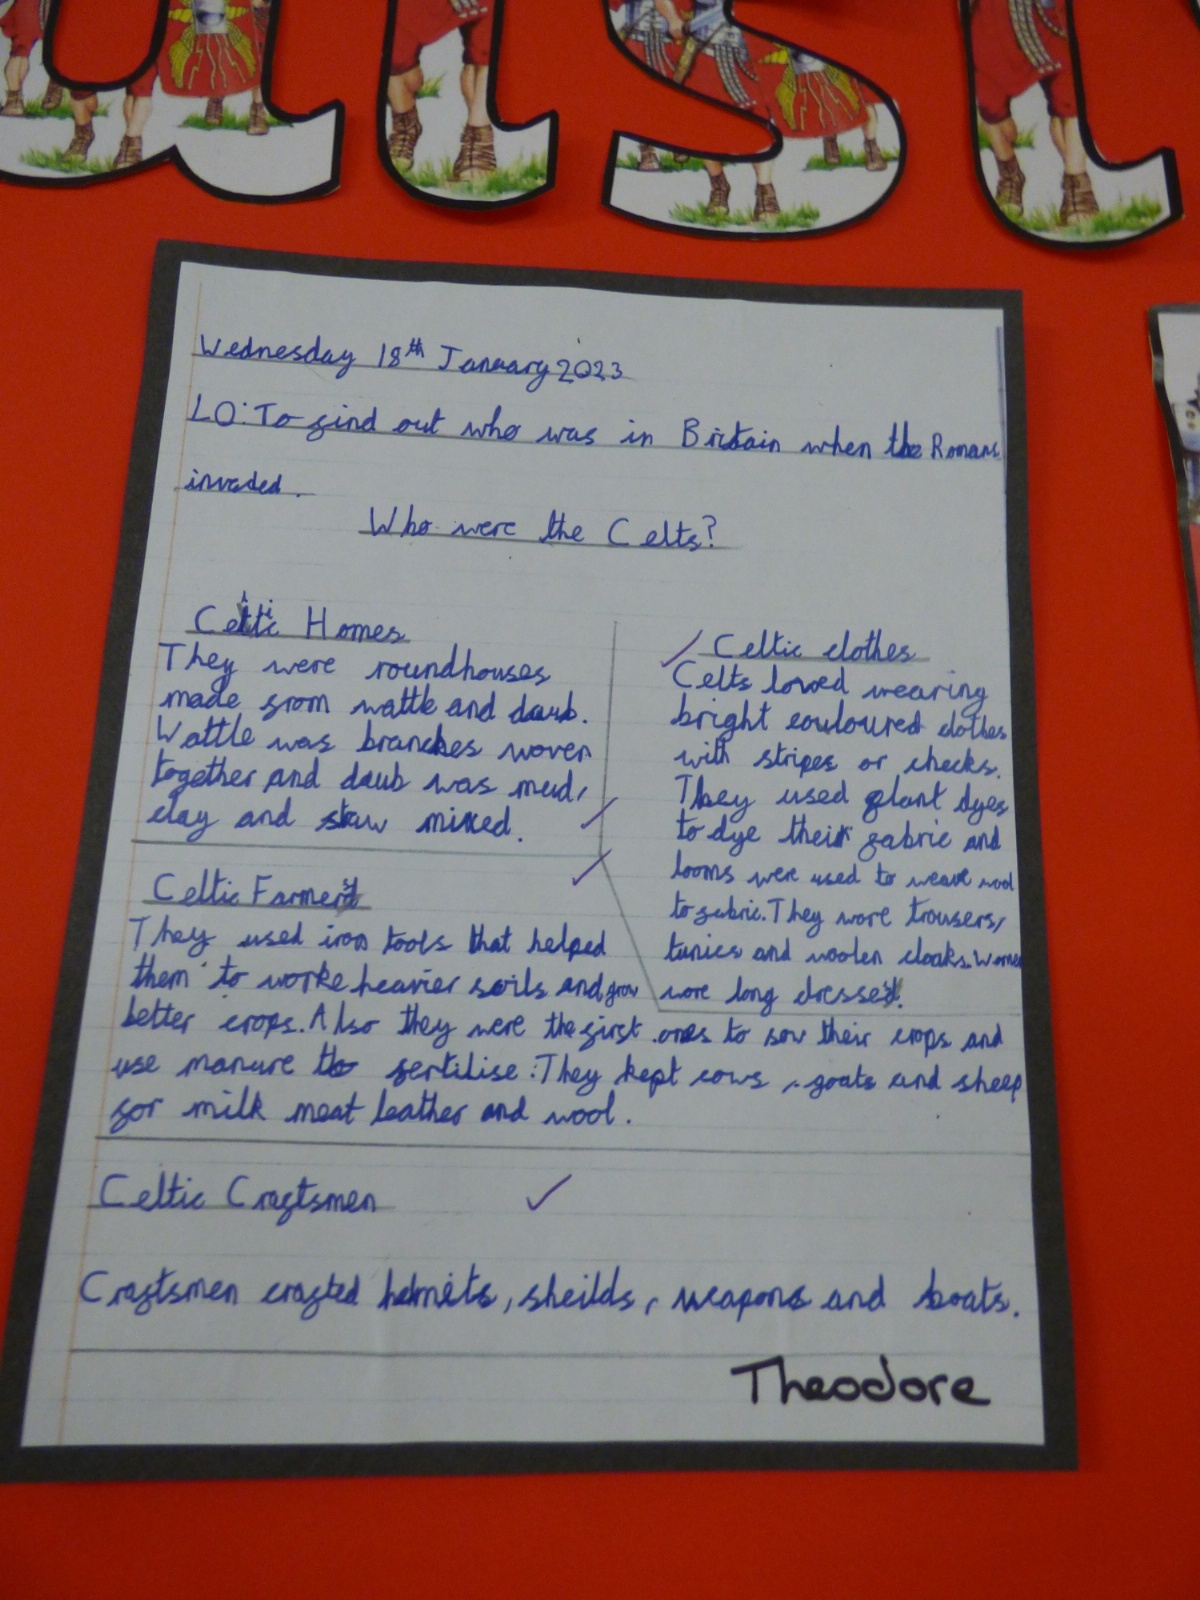 Wednesday 18th January 2023
LO: To find out who was in Britain when the Romans
invaded.
Who were the Celts?
Celtic Homes
They were roundhouses
made from wattle and daub.
Wattle was branches woven
together and daub was mud,
clay and straw mixed.
Celtic clothes
Celts loved wearing
bright couloured clothes
with stripes or checks.
They used plant dyes
to dye their fabric and
looms were used to weave wool
to fabric. They wore trousers,
tunics and woolen cloaks. Women
wore long dresses.
Celtic Farmers
They used iron tools that helped
them to worke heavier soils and grow
better crops. Also they were the first ones to sow their crops and
use manure to fertilise. They kept cows, goats and sheep
for milk meat leather and wool.
Celtic Craftsmen
Craftsmen crafted helmets, sheilds, weapons and boats.
Theodore